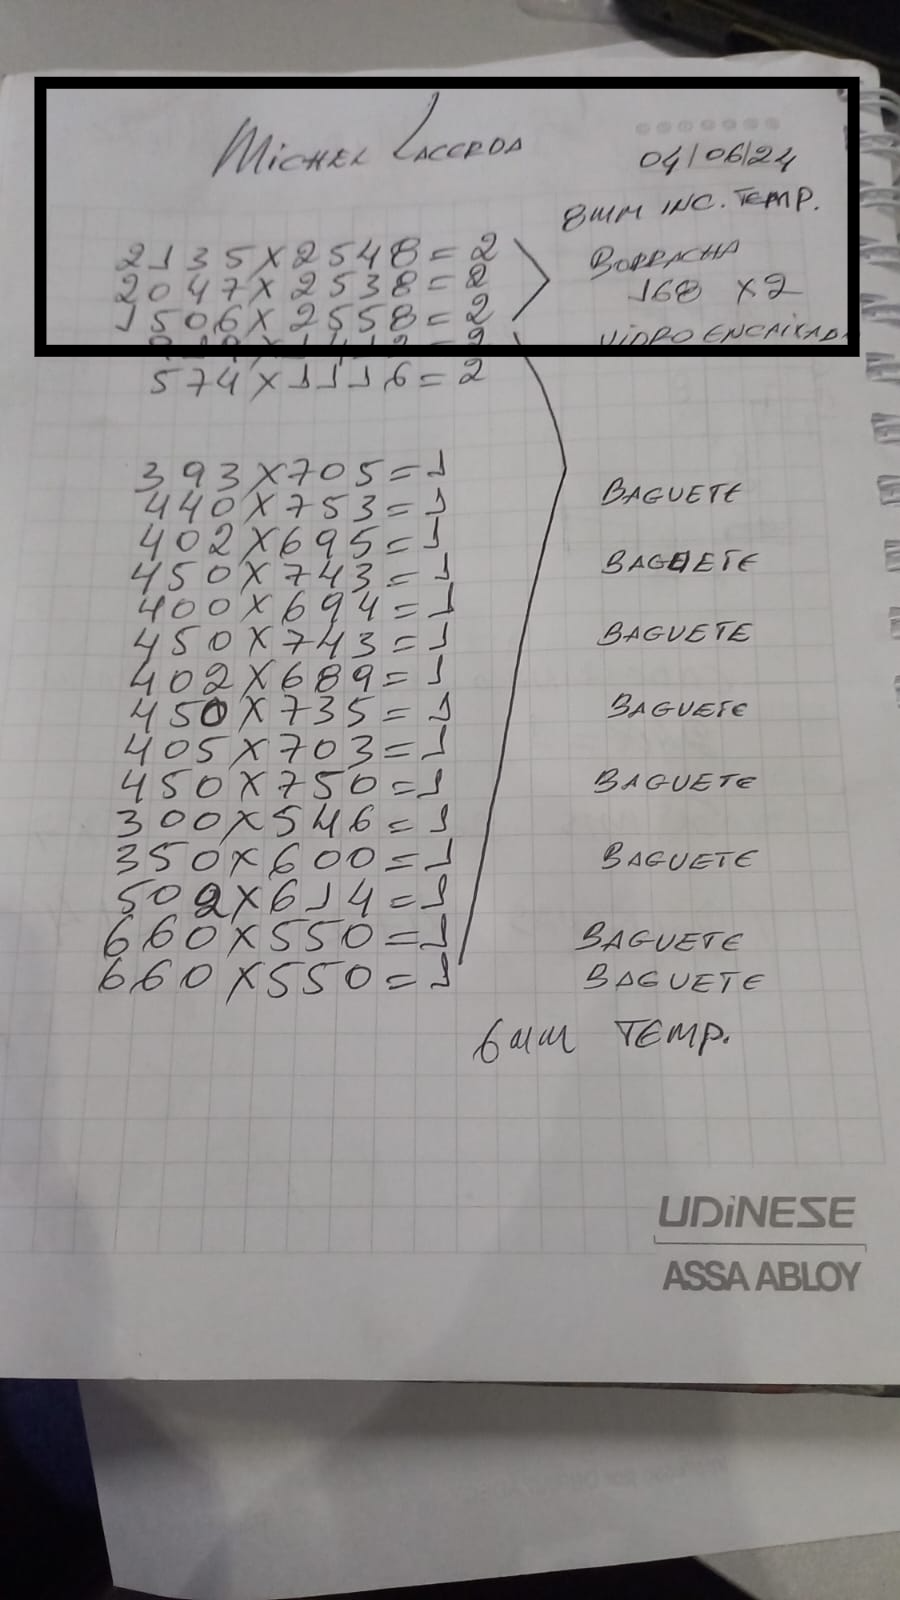 MICHEL LACERDA
04/06/24
8MM INC. TEMP.
2135X2548=2
BORRACHA
2047X2538=2
168 X2
1506X2558=2
VIDRO ENCAIXADO
574X1116=2
393X705=1
BAGUETE
440X753=1
402X695=1
BAGUETE
450X743=1
400X694=1
BAGUETE
450X743=1
402X689=1
BAGUETE
450X735=1
405X703=1
BAGUETE
450X750=1
300X546=1
BAGUETE
350X600=1
502X614=1
660X550=1
BAGUETE
660X550=1
BAGUETE
6MM TEMP.
UDiNESE
ASSA ABLOY